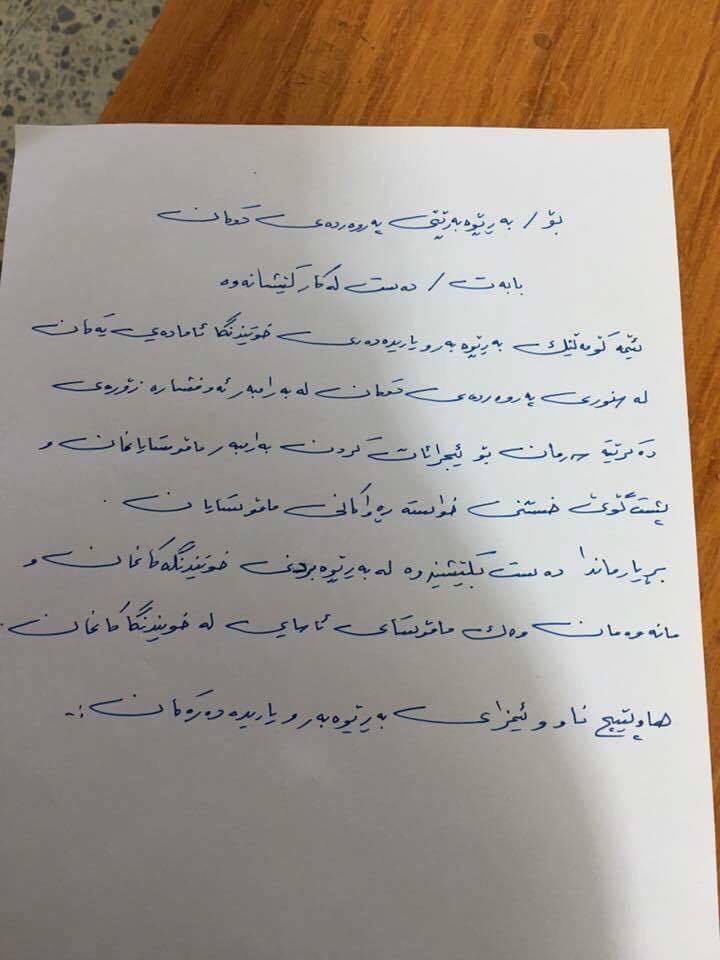 بۆ / بەڕێوەبەرێتی پەروەردەی
بابەت / دەست لەکارکێشانەوە
ئێمە کۆمەڵێک بەڕێوەبەر و یاریدەدەری خوێندنگا ئامادەی یەکان
لە سنوری پەروەردەی لە بەرامبەر ئەو فشارە زۆرەی
دەکرێتە سەرمان بۆ ئیجرائات کردن بەرامبەر مامۆستایانمان و
پشت گوێ خستنی خواستە ڕەواکانی مامۆستایان .
بڕیارماندا دەست بکێشینەوە لە بەڕێوەبردنی خوێندنگەکانمان و
مانەوەمان وەک مامۆستای ئاسایی لە خوێندنگاکانمان .
هاوپێچ ناو و ئیمزای بەڕێوەبەر و یاریدەدەرەکان :-